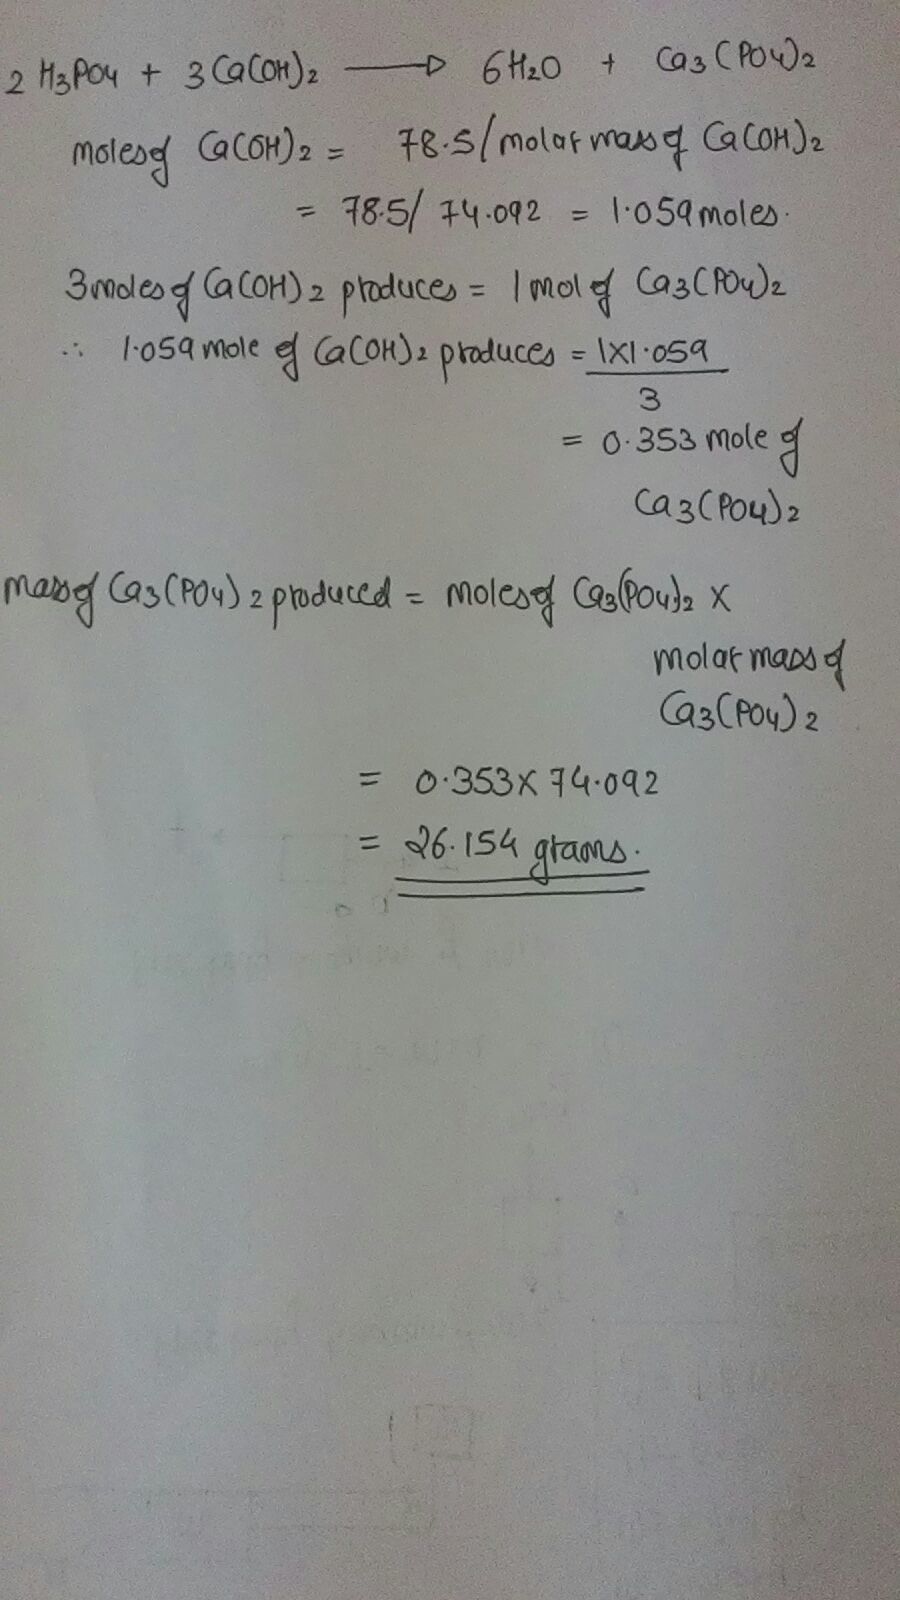 2 H3PO4 + 3 Ca(OH)2 → 6H2O + Ca3(PO4)2
moles of Ca(OH)2 = 78.5/molar mass of Ca(OH)2
= 78.5/74.092 = 1.059 moles.
3 moles of Ca(OH)2 produces = 1 mol of Ca3(PO4)2
∴ 1.059 mole of Ca(OH)2 produces = 1X1.059
3
= 0.353 mole of
Ca3(PO4)2
mass of Ca3(PO4)2 produced = moles of Ca3(PO4)2 X
molar mass of
Ca3(PO4)2
= 0.353X 74.092
= 26.154 grams.